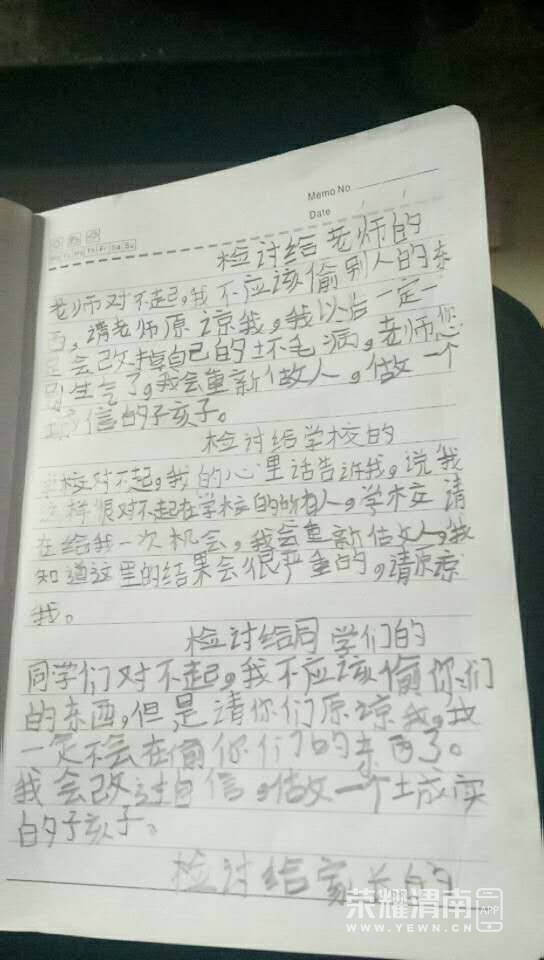 Memo No
Date
Mo Tu We Th Fr Sa Su
检讨给老师的
老师对不起,我不应该偷别人的东
西,请老师原谅我,我以后一定一
定会改掉自己的坏毛病,老师您
别生气了,我会重新做人,做一个
诚信的孩子。
检讨给学校的
学校对不起,我的心里话告诉我,说我
这样很对不起在学校的所有人,学校请
在给我一次机会,我会重新做人,我
知道这里的结果会很严重的,请原谅
我。
检讨给同学们的
同学们对不起,我不应该偷你们
的东西,但是请你们原谅我,我
一定不会在偷你们的东西了。
我会改过自信,做一个诚实
的孩子。
检讨给家长的
荣耀渭南 APP
WWW.YEWN.CN